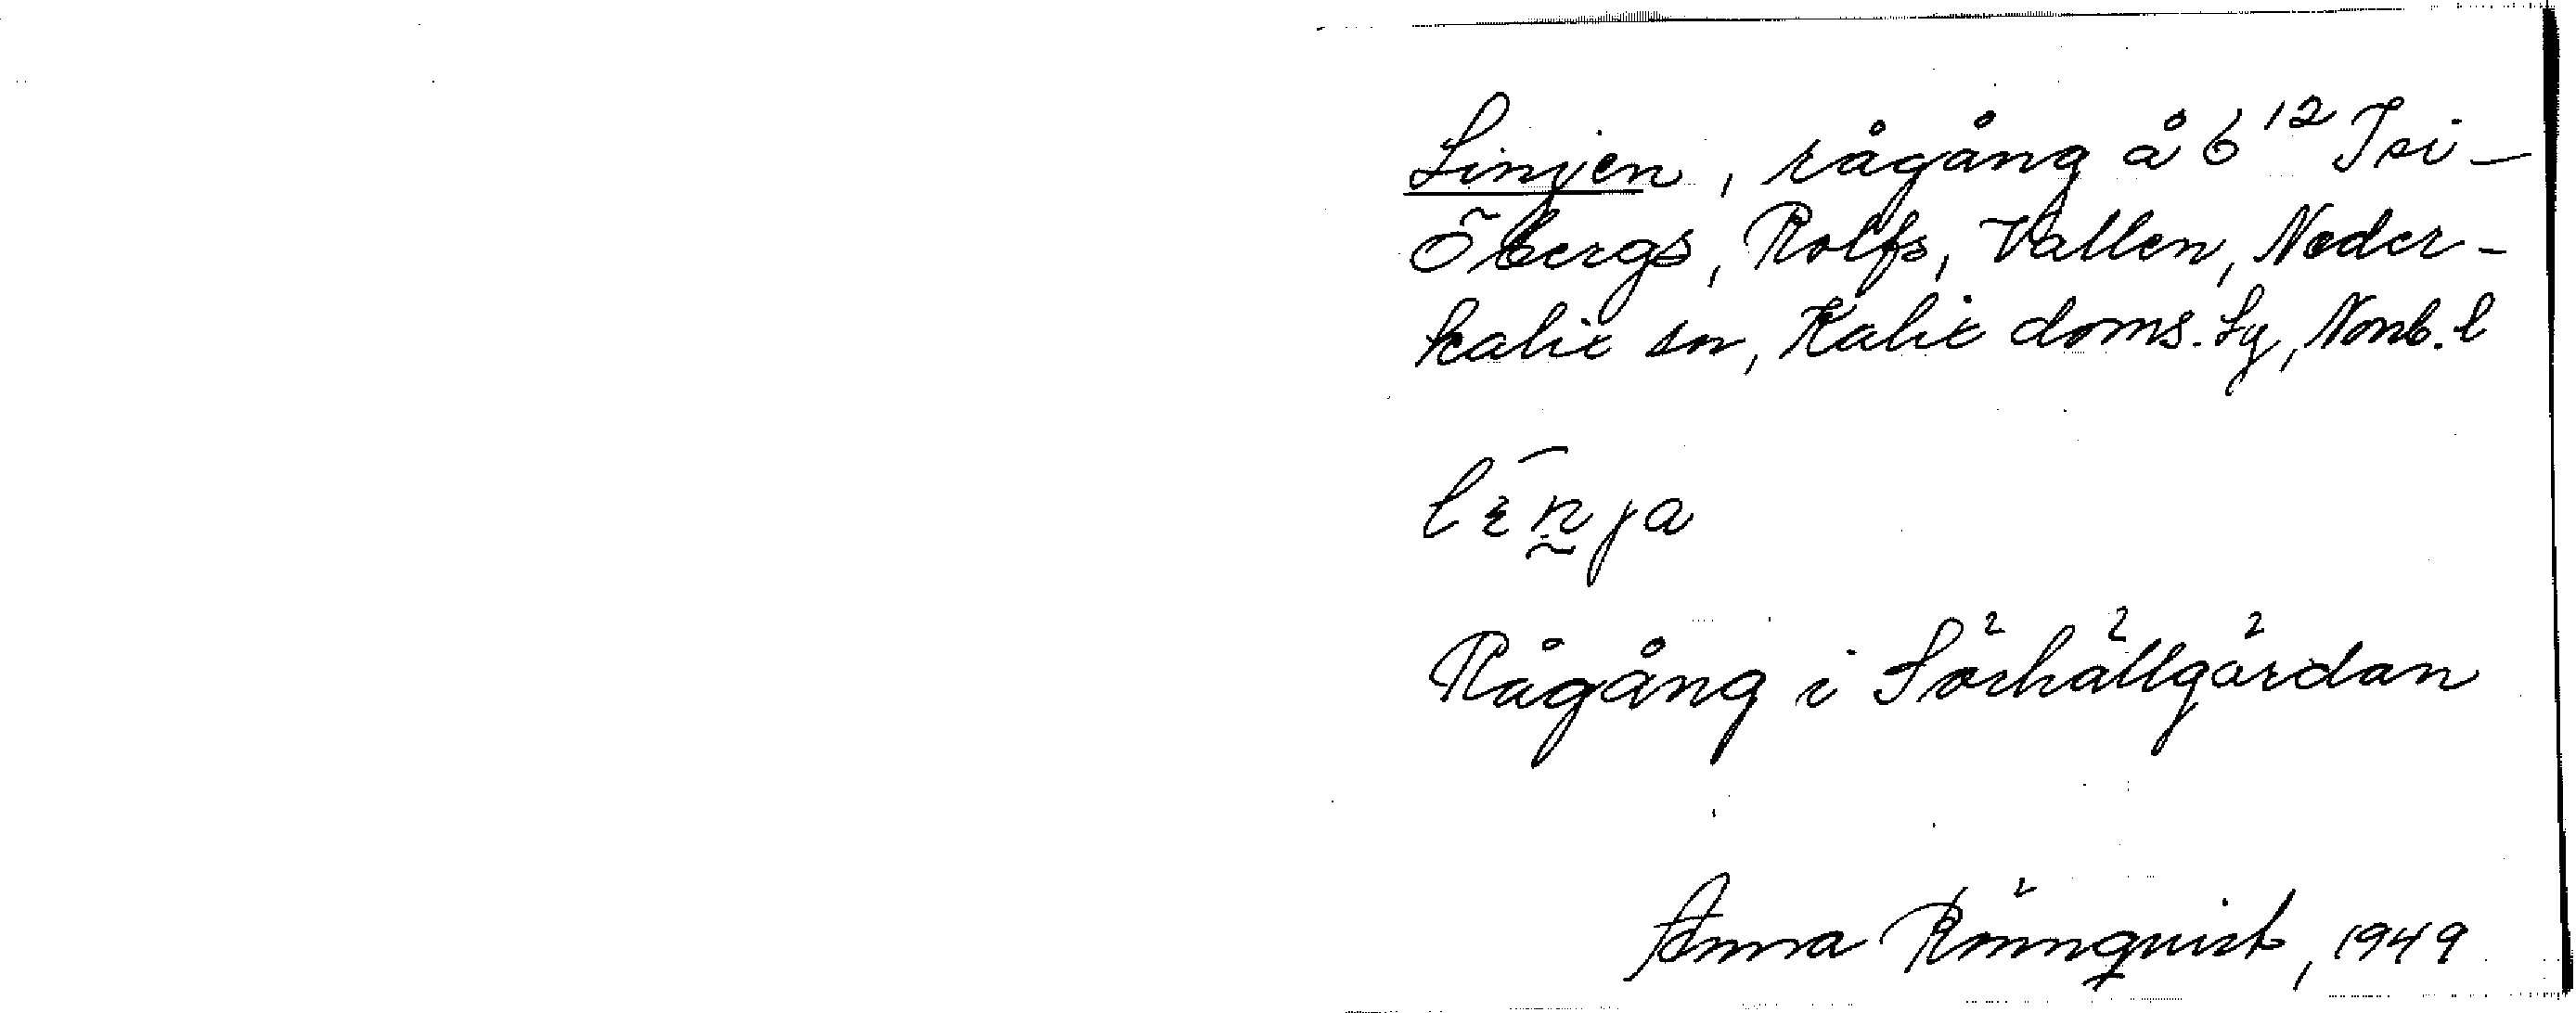 Linjen, rågång å 6¹² Isi-
öbergs, Rolfs, Vallen, Neder-
kalix sn, Kalix doms. sg, Norrb. l
Rågång i Sörhällgärdan
Anna Rönnqvist, 1949